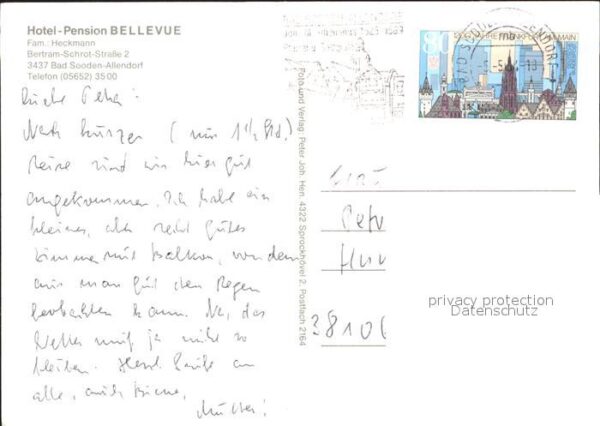 Hotel-Pension BELLEVUE
Fam.: Heckmann
Bertram-Schrot-Straße 2
3437 Bad Sooden-Allendorf
Telefon (05652) 3500
Nach kurzer (nur 1½ Std.)
Reise sind wir hier gut
angekommen. Ich habe ein
kleines, aber recht gutes
Zimmer mit Balkon, von dem
aus man gut den Regen
beobachten kann. Na, das
Wetter muß ja nicht so
bleiben. Herzl. Grüße an
alle, auch
Mutter!
Foto und Verlag Peter Joh. Hen. 4322 Sprockhövel 2. Postfach 2164
80
BAD SOODEN-ALLENDORF
38106
privacy protection
Datenschutz